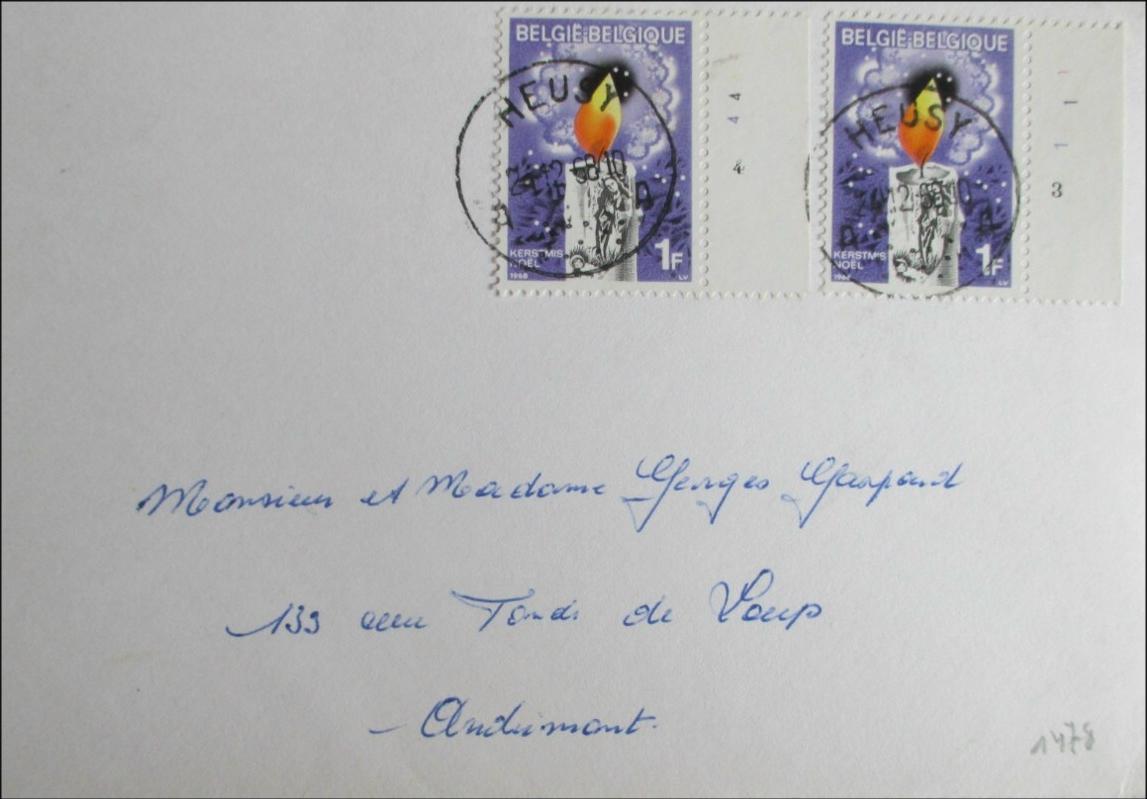 BELGIË-BELGIQUE
HEUSY
24.12-68.10
A A
KERSTMIS
NOËL
1968
1F
LV
4 4
4
BELGIË-BELGIQUE
HEUSY
24.12-68.10
A A
KERSTMIS
NOËL
1968
1F
LV
1 1 1
3
Monsieur et Madame Georges Gaspard
133 rue Fonds de Loup
- Andrimont.
1478